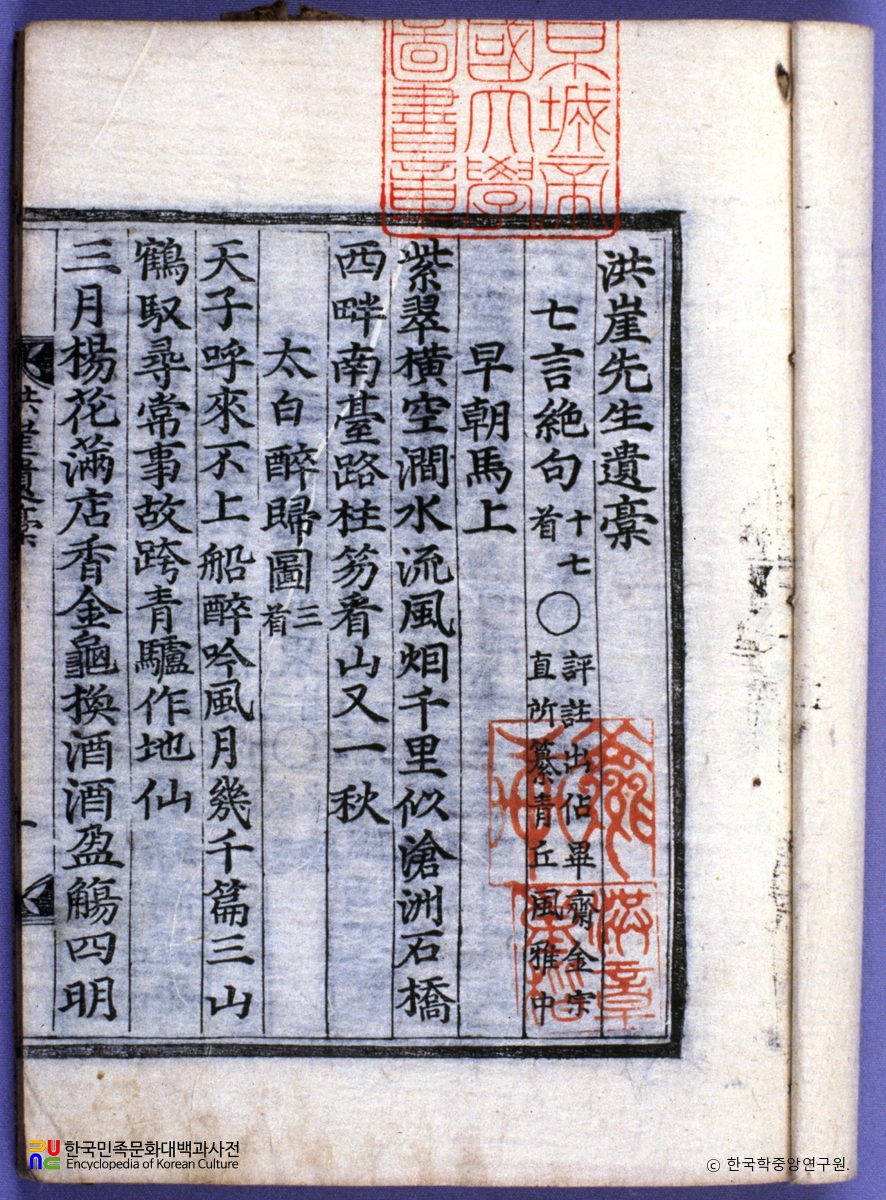 京城帝
國大學
圖書章
洪崖先生遺稾
七言絶句 十七首 ○ 評註出佔畢齋金宗直所纂青丘風雅中
早朝馬上
紫翠橫空澗水流風烟千里似滄洲石橋
西畔南臺路柱笏看山又一秋
太白醉歸圖 三首
天子呼來不上船醉吟風月幾千篇三山
鶴馭尋常事故跨青驢作地仙
三月楊花滿店香金龜換酒酒盈觴四明
洪崖遺稾
一
한국민족문화대백과사전
Encyclopedia of Korean Culture
© 한국학중앙연구원.